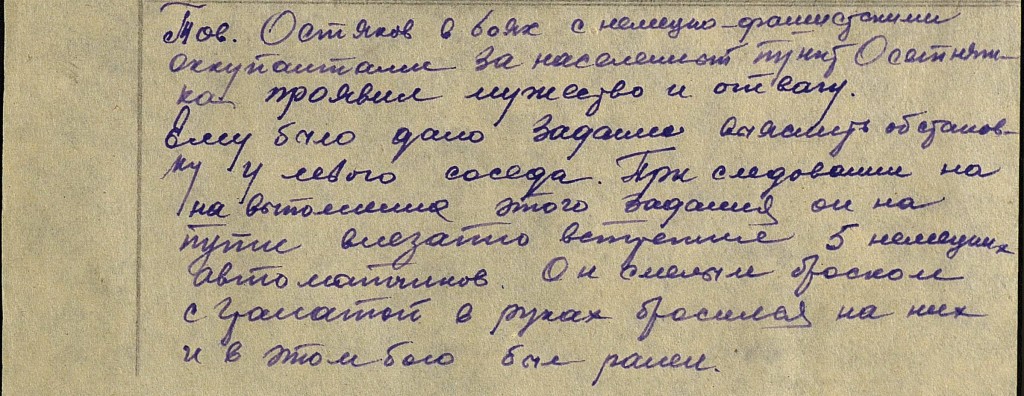 Тов. Остяков в боях с немецко-фашистскими
оккупантами за населенный пункт Осотняж-
ка проявил мужество и отвагу.
Ему было дано задание выяснить обстанов-
ку у левого соседа. При следовании на
на выполнение этого задания он на
пути внезапно встретил 5 немецких
автоматчиков. Он смелым броском
с гранатой в руках бросился на них
и в этом бою был ранен.